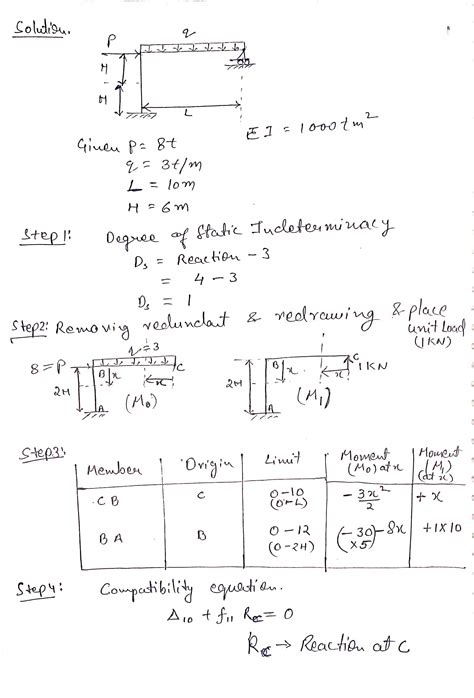 Solution.
q
P
H
H
L
EI = 1000 t m²
Given P = 8t
q = 3t/m
L = 10m
H = 6m
Step1: Degree of Static Indeterminacy
Ds = Reaction - 3
= 4 - 3
Ds = 1
Step2: Removing redundant & redrawing & place unit load (1KN)
q=3
8 = P
B
x
x
C
2H
A
(M₀)
B
x
x
C
1KN
2H
A
(M₁)
Step3:
Member | Origin | Limit | Moment (M₀) at x | Moment (M₁) (at x)
CB | C | 0-10 (0-L) | -3x²/2 | +x
BA | B | 0-12 (0-2H) | (-30×5) - 8x | +1×10
Step4: Compatibility equation.
Δ₁₀ + f₁₁ Rc = 0
Rc → Reaction at C